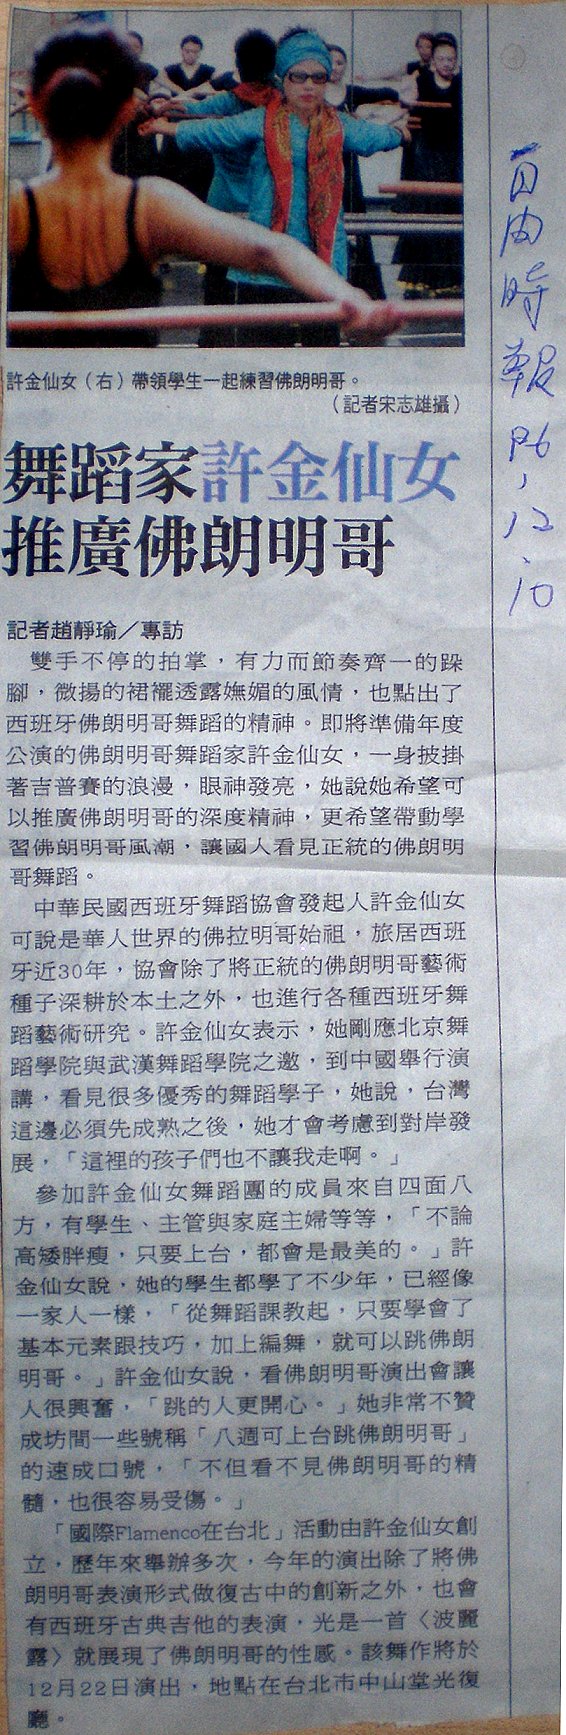 許金仙女（右）帶領學生一起練習佛朗明哥。
（記者宋志雄攝）
舞蹈家許金仙女
推廣佛朗明哥
記者趙靜瑜／專訪
雙手不停的拍掌，有力而節奏齊一的跺
腳，微揚的裙襬透露嫵媚的風情，也點出了
西班牙佛朗明哥舞蹈的精神。即將準備年度
公演的佛朗明哥舞蹈家許金仙女，一身披掛
著吉普賽的浪漫，眼神發亮，她說她希望可
以推廣佛朗明哥的深度精神，更希望帶動學
習佛朗明哥風潮，讓國人看見正統的佛朗明
哥舞蹈。
中華民國西班牙舞蹈協會發起人許金仙女
可說是華人世界的佛拉明哥始祖，旅居西班
牙近30年，協會除了將正統的佛朗明哥藝術
種子深耕於本土之外，也進行各種西班牙舞
蹈藝術研究。許金仙女表示，她剛應北京舞
蹈學院與武漢舞蹈學院之邀，到中國舉行演
講，看見很多優秀的舞蹈學子，她說，台灣
這邊必須先成熟之後，她才會考慮到對岸發
展，「這裡的孩子們也不讓我走啊。」
參加許金仙女舞蹈團的成員來自四面八
方，有學生、主管與家庭主婦等等，「不論
高矮胖瘦，只要上台，都會是最美的。」許
金仙女說，她的學生都學了不少年，已經像
一家人一樣，「從舞蹈課教起，只要學會了
基本元素跟技巧，加上編舞，就可以跳佛朗
明哥。」許金仙女說，看佛朗明哥演出會讓
人很興奮，「跳的人更開心。」她非常不贊
成坊間一些號稱「八週可上台跳佛朗明哥」
的速成口號，「不但看不見佛朗明哥的精
髓，也很容易受傷。」
「國際Flamenco在台北」活動由許金仙女創
立，歷年來舉辦多次，今年的演出除了將佛
朗明哥表演形式做復古中的創新之外，也會
有西班牙古典吉他的表演，光是一首〈波麗
露〉就展現了佛朗明哥的性感。該舞作將於
12月22日演出，地點在台北市中山堂光復
廳。
自由時報 96,12.10